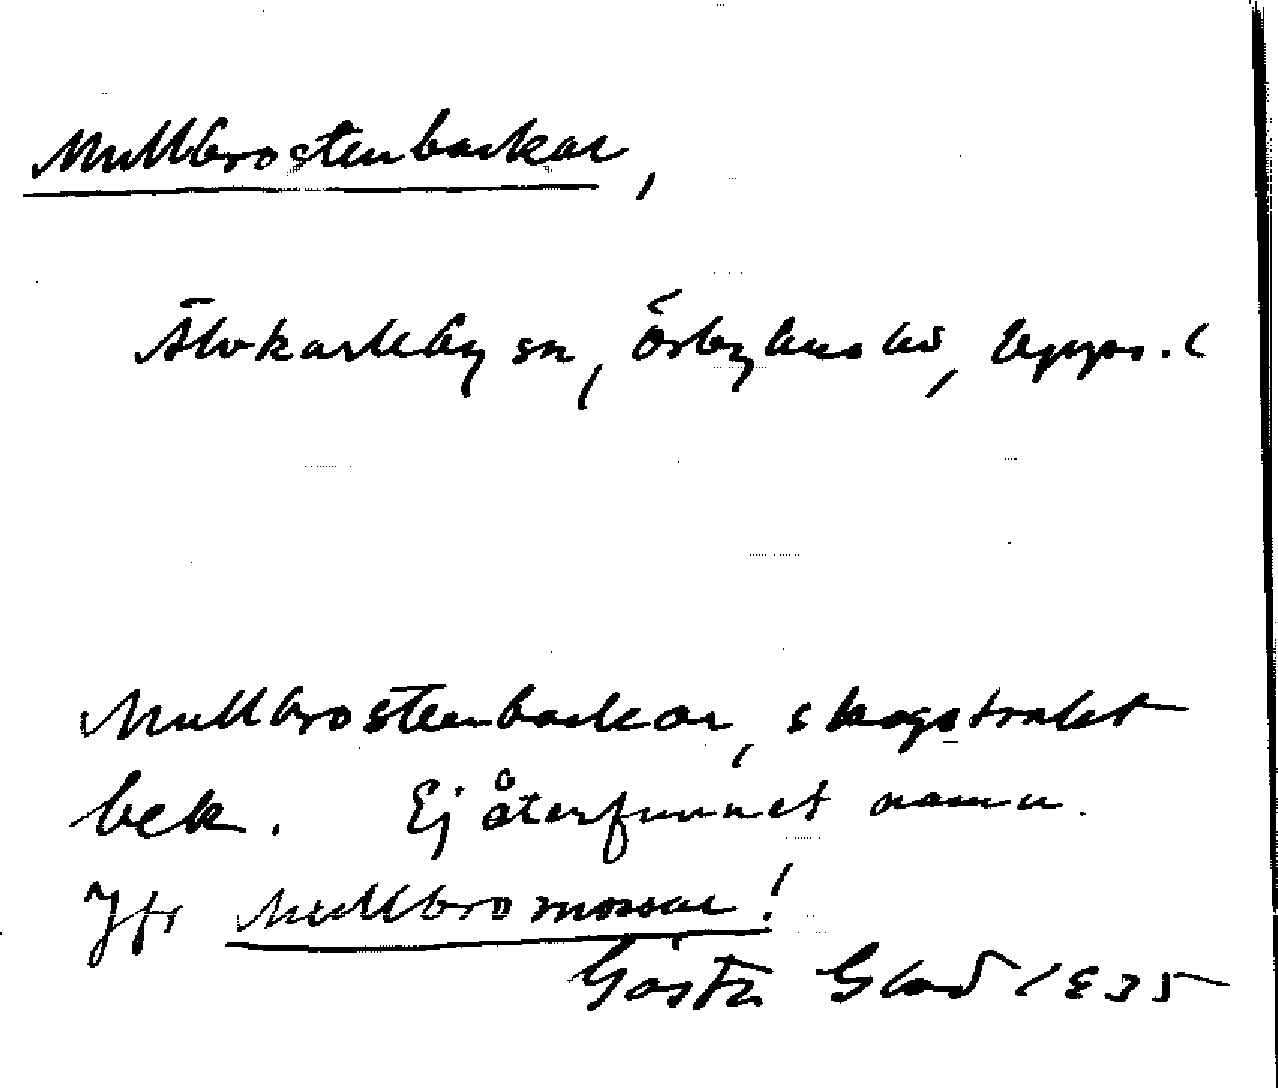 Mullbrostenbackar,
Älvkarleby sn, Örbyhus hd, Upps. l
Mullbrostenbackar, skogstrakt
bek. Ej återfunnet namn.
Jfr Mullbromossar!
Gösta 1935